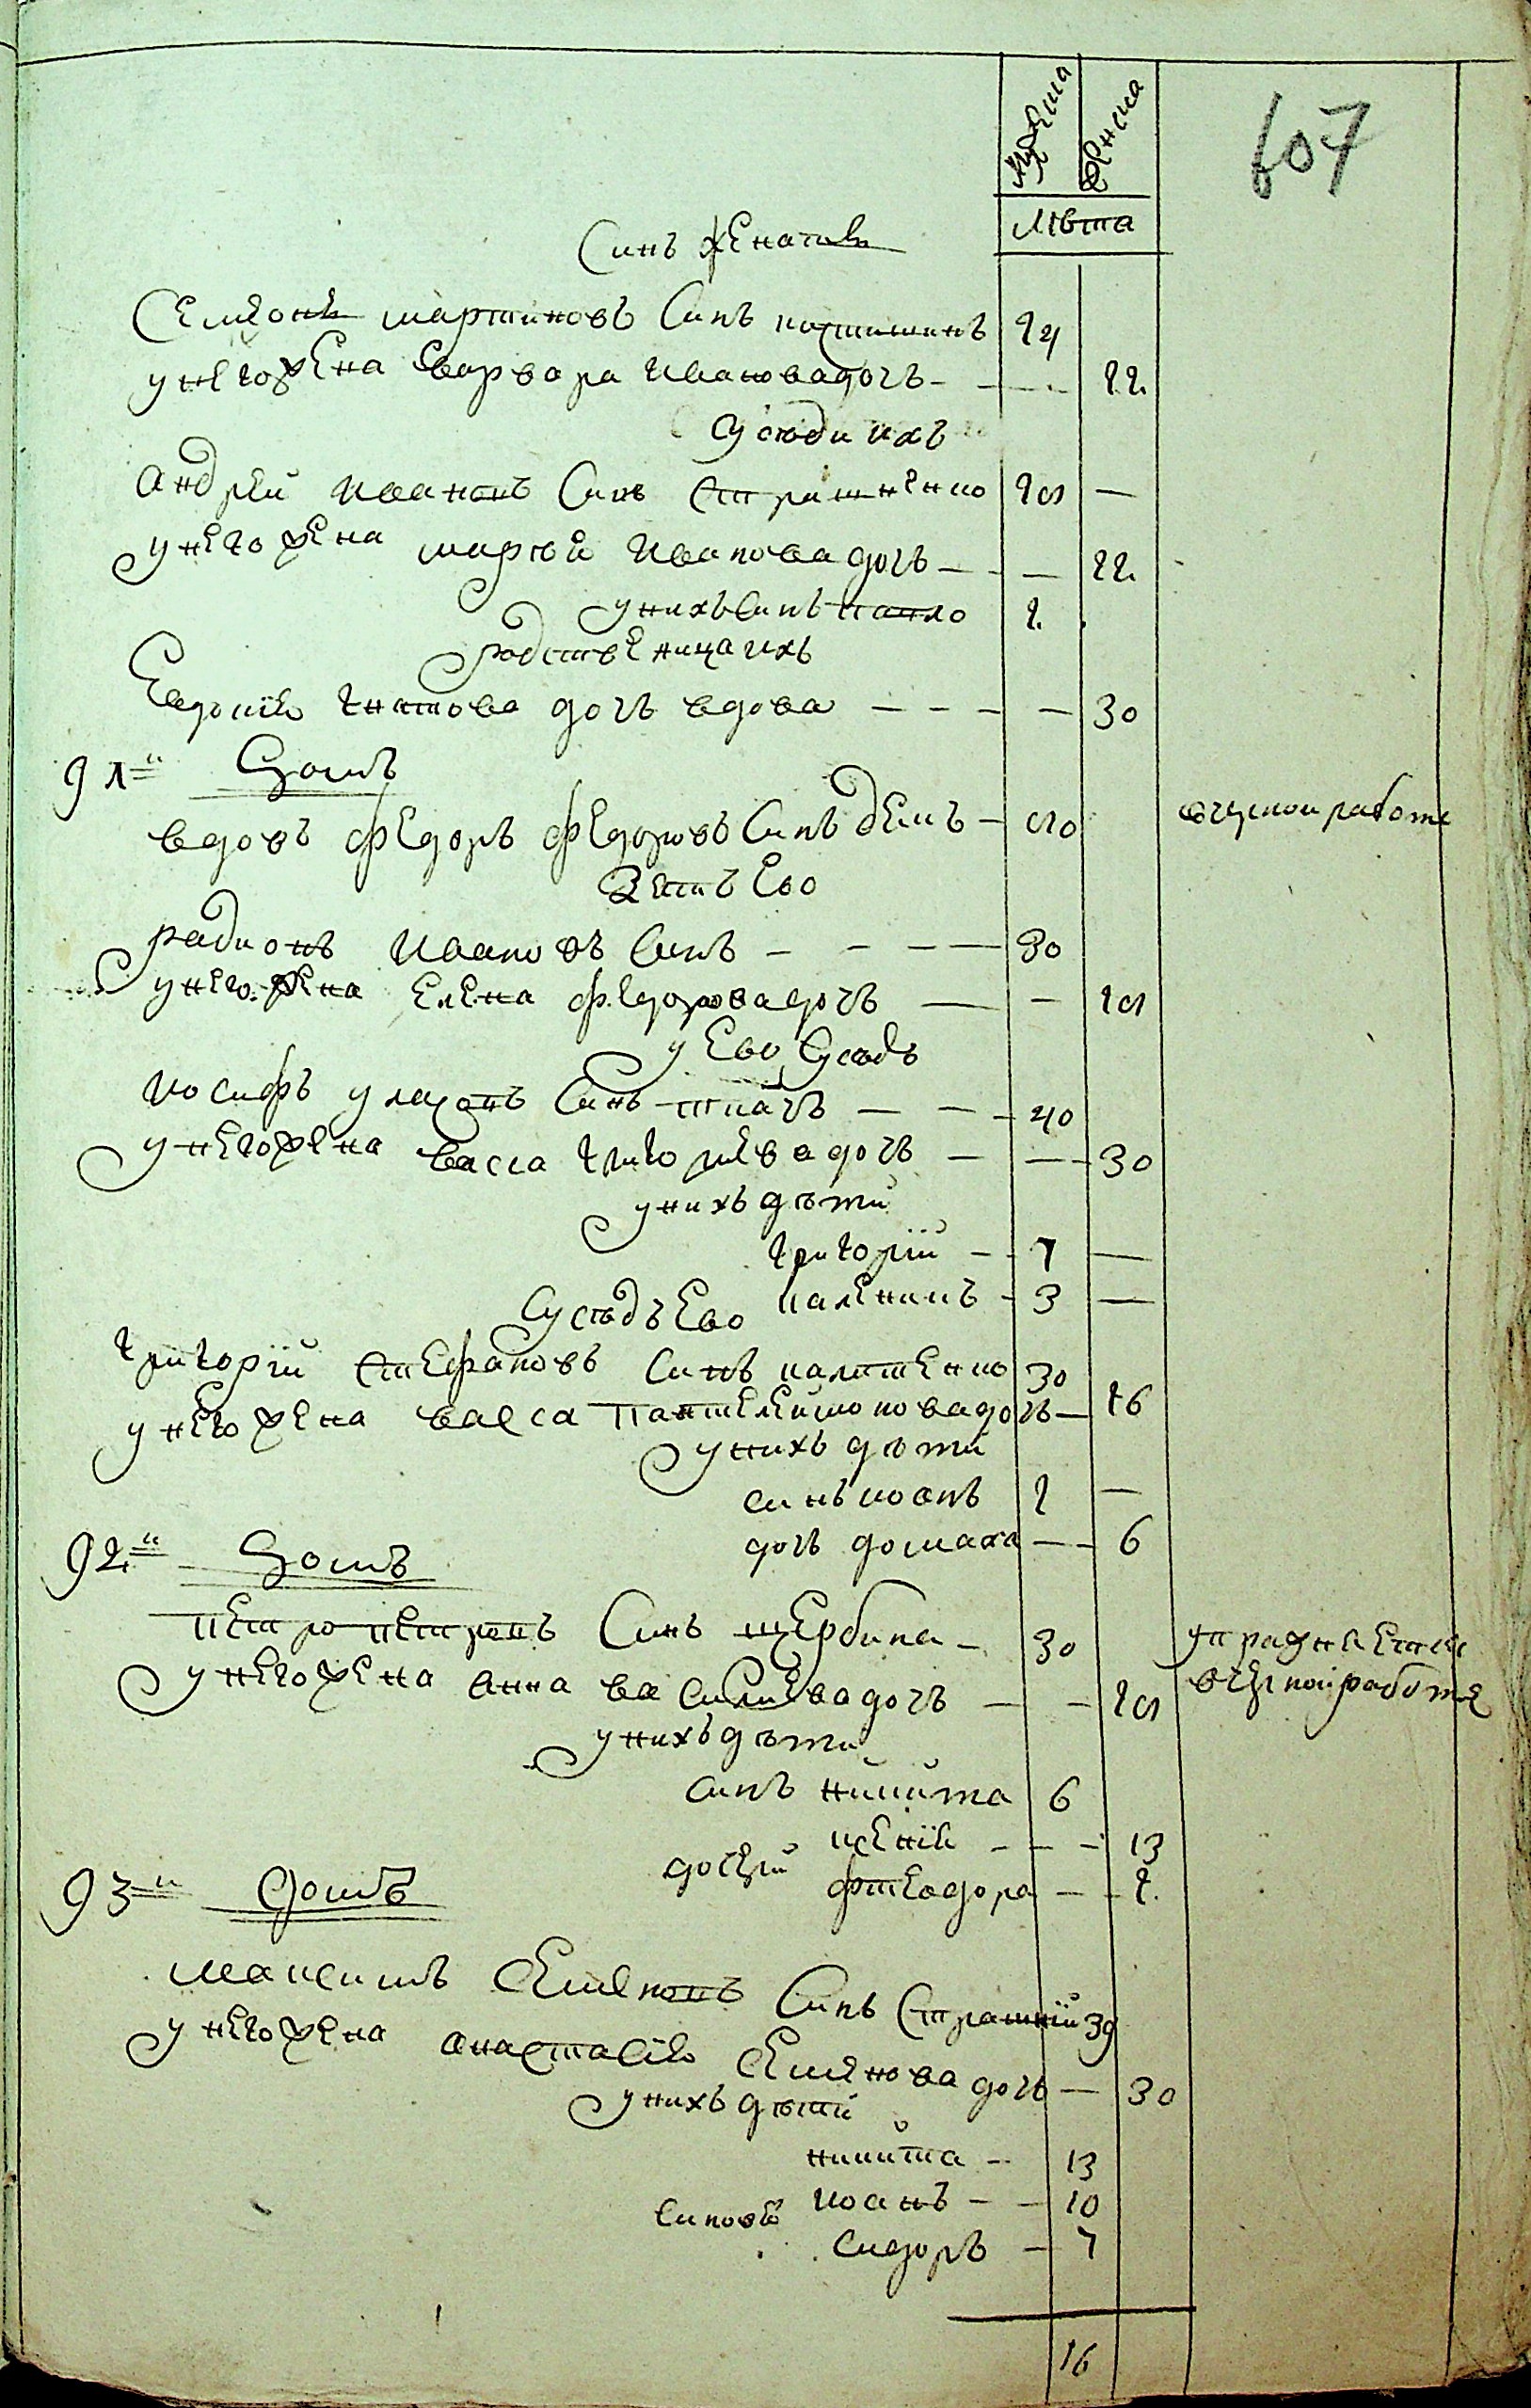 мужеска женска
107
лѣта
Синъ женатъ
Семіонъ мартиновъ Синъ 24
у него жена варвара иванова дочь - - - 22
Сусѣди ихъ
андрѣй ивановъ Синъ Страшненко 25 —
у него жена марѳа иванова дочь — — 22
у нихъ Синъ павло 2
родственица ихъ
Евдокія игнатова дочь вдова - - - — 30
91й домъ
вдовъ федоръ федоровъ Синъ демъ - 50 в чужой работе
Зять Ево
радионъ ивановъ Синъ - - - — 30
у него жена елена федорова дочь — — 25
у Ево Сусѣдъ
иосифъ Синъ ткачъ — - - 40
у него жена васса григориева дочь — — 30
у нихъ дѣти
григорій - 7 —
Сусѣдъ Ево
каленикъ - 3 —
григорій Стефановъ Синъ 30
у него жена васса пантелеймонова дочь — 26
у нихъ дѣти
синъ иоанъ 2 —
дочь домаха — - 6
92й домъ
петро петровъ Синъ щербина - 30
у него жена анна василиева дочь — - 25 в чужой работе
у нихъ дѣти
синъ никита 6
дочери ксенія - - - 13
фтеодора — - 2
93й домъ
максимъ Семеновъ Синъ Страшній 39
у него жена анастасія Семенова дочь — 30
у нихъ дѣти
никита - 13
Синови иоанъ - - 10
сидоръ - 7
16